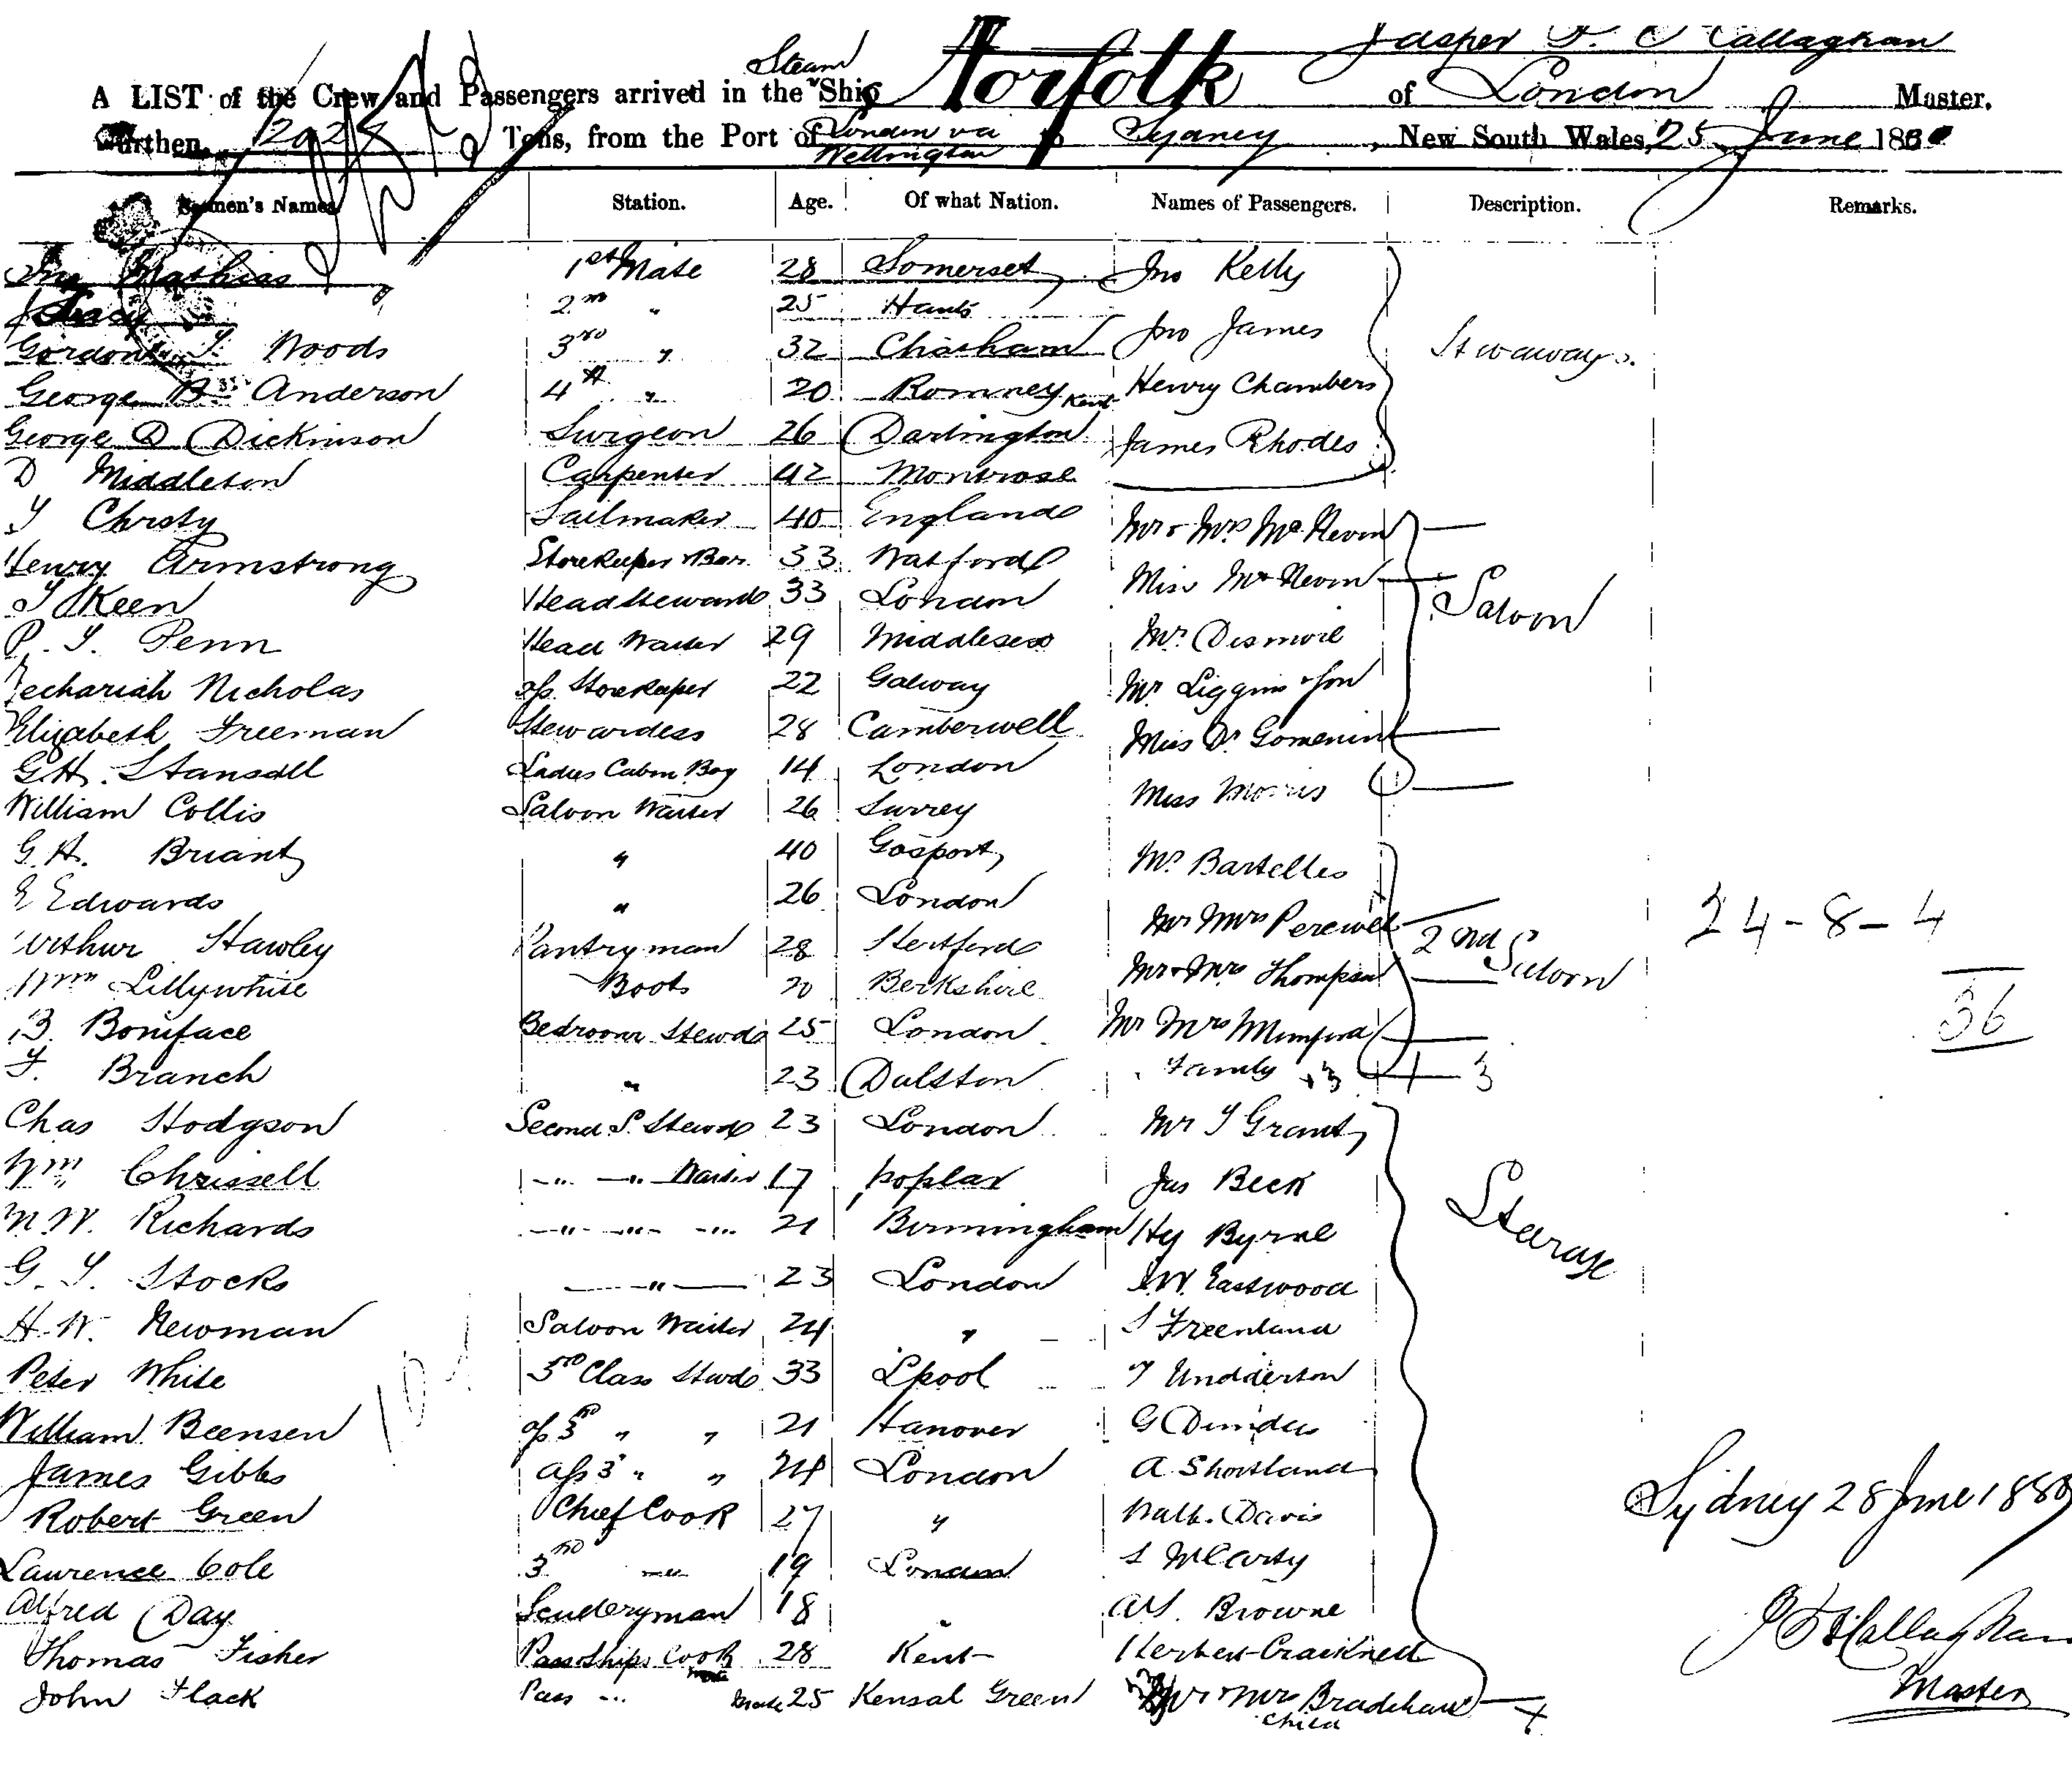 Jasper F. O Callaghan
A LIST of the Crew and Passengers arrived in the Steam Ship Norfolk of London Master,
Burthen, Tons, from the Port of London via Wellington to Sydney, New South Wales, 25 June 188
Seamen's Names Station. Age. Of what Nation. Names of Passengers. Description. Remarks.
Mathias 1st Mate 28 Somerset Jno Kelly
2nd " 25 Hants
Gordon T. Woods 3rd " 32 Chatham Jno James Stwaways.
George Anderson 4th " 20 Romney Kent Henry Chambers
George D Dickinson Surgeon 26 Darlington James Rhodes
D Middleton Carpenter 42 Montrose
T Christy Sailmaker 40 England Mr & Mrs McNevin
Henry Armstrong Storekeeper & Bar. 33 Watford Miss McNevin
Keen Head Steward 33 London Saloon
P. T. Penn Head Waiter 29 Middlesex Mr. Dismore
Zechariah Nicholas ass Storekeeper 22 Galway Mr Liggins & Son
Elizabeth Freeman Stewardess 28 Camberwell Miss
G.H. Stansall Ladies Cabin Boy 14 London
William Collis Saloon Waiter 26 Surrey Miss Morris
G.H. Briant " 40 Gosport Mr Bartelles
E Edwards " 26 London Mr Mrs 24-8-4
Arthur Hawley Pantryman 28 Hertford 2nd Saloon
Wm Lillywhite Boots 20 Berkshire Mr & Mrs Thompson
B. Boniface Bedroom Stewd 25 London Mr Mrs Mumford 36
F. Branch " 23 Dalston Family +3 3
Chas Hodgson Second S. Stewd 23 London Mr T Grant
Wm Chrissell " " Waiter 17 poplar Jas Beck
W.W. Richards " " " 21 Birmingham Hy Byrne Steerage
G. T. Stocks " 23 London W. Eastwood
H. W. Newman Saloon Waiter 24 " Freenland
Peter White 3rd Class Stwd 33 Lpool T Undderton
William Beensen ass 3rd " " 21 Hanover G Dundas
James Gibbs ass 3 " " 24 London A. Shortland
Robert Green Chief Cook 27 " Walt. Davis Sydney 28 June 1880
Lawrence Cole 3rd " 19 London McCarty
Alfred Day Sculleryman 18 " Browne
Thomas Fisher Pass & Ships Cook 28 Kent Herbert Cracknell J F O'Callaghan
John Flack Pass " Mate 25 Kensal Green Mr & Mrs Bradshaw Master
Child